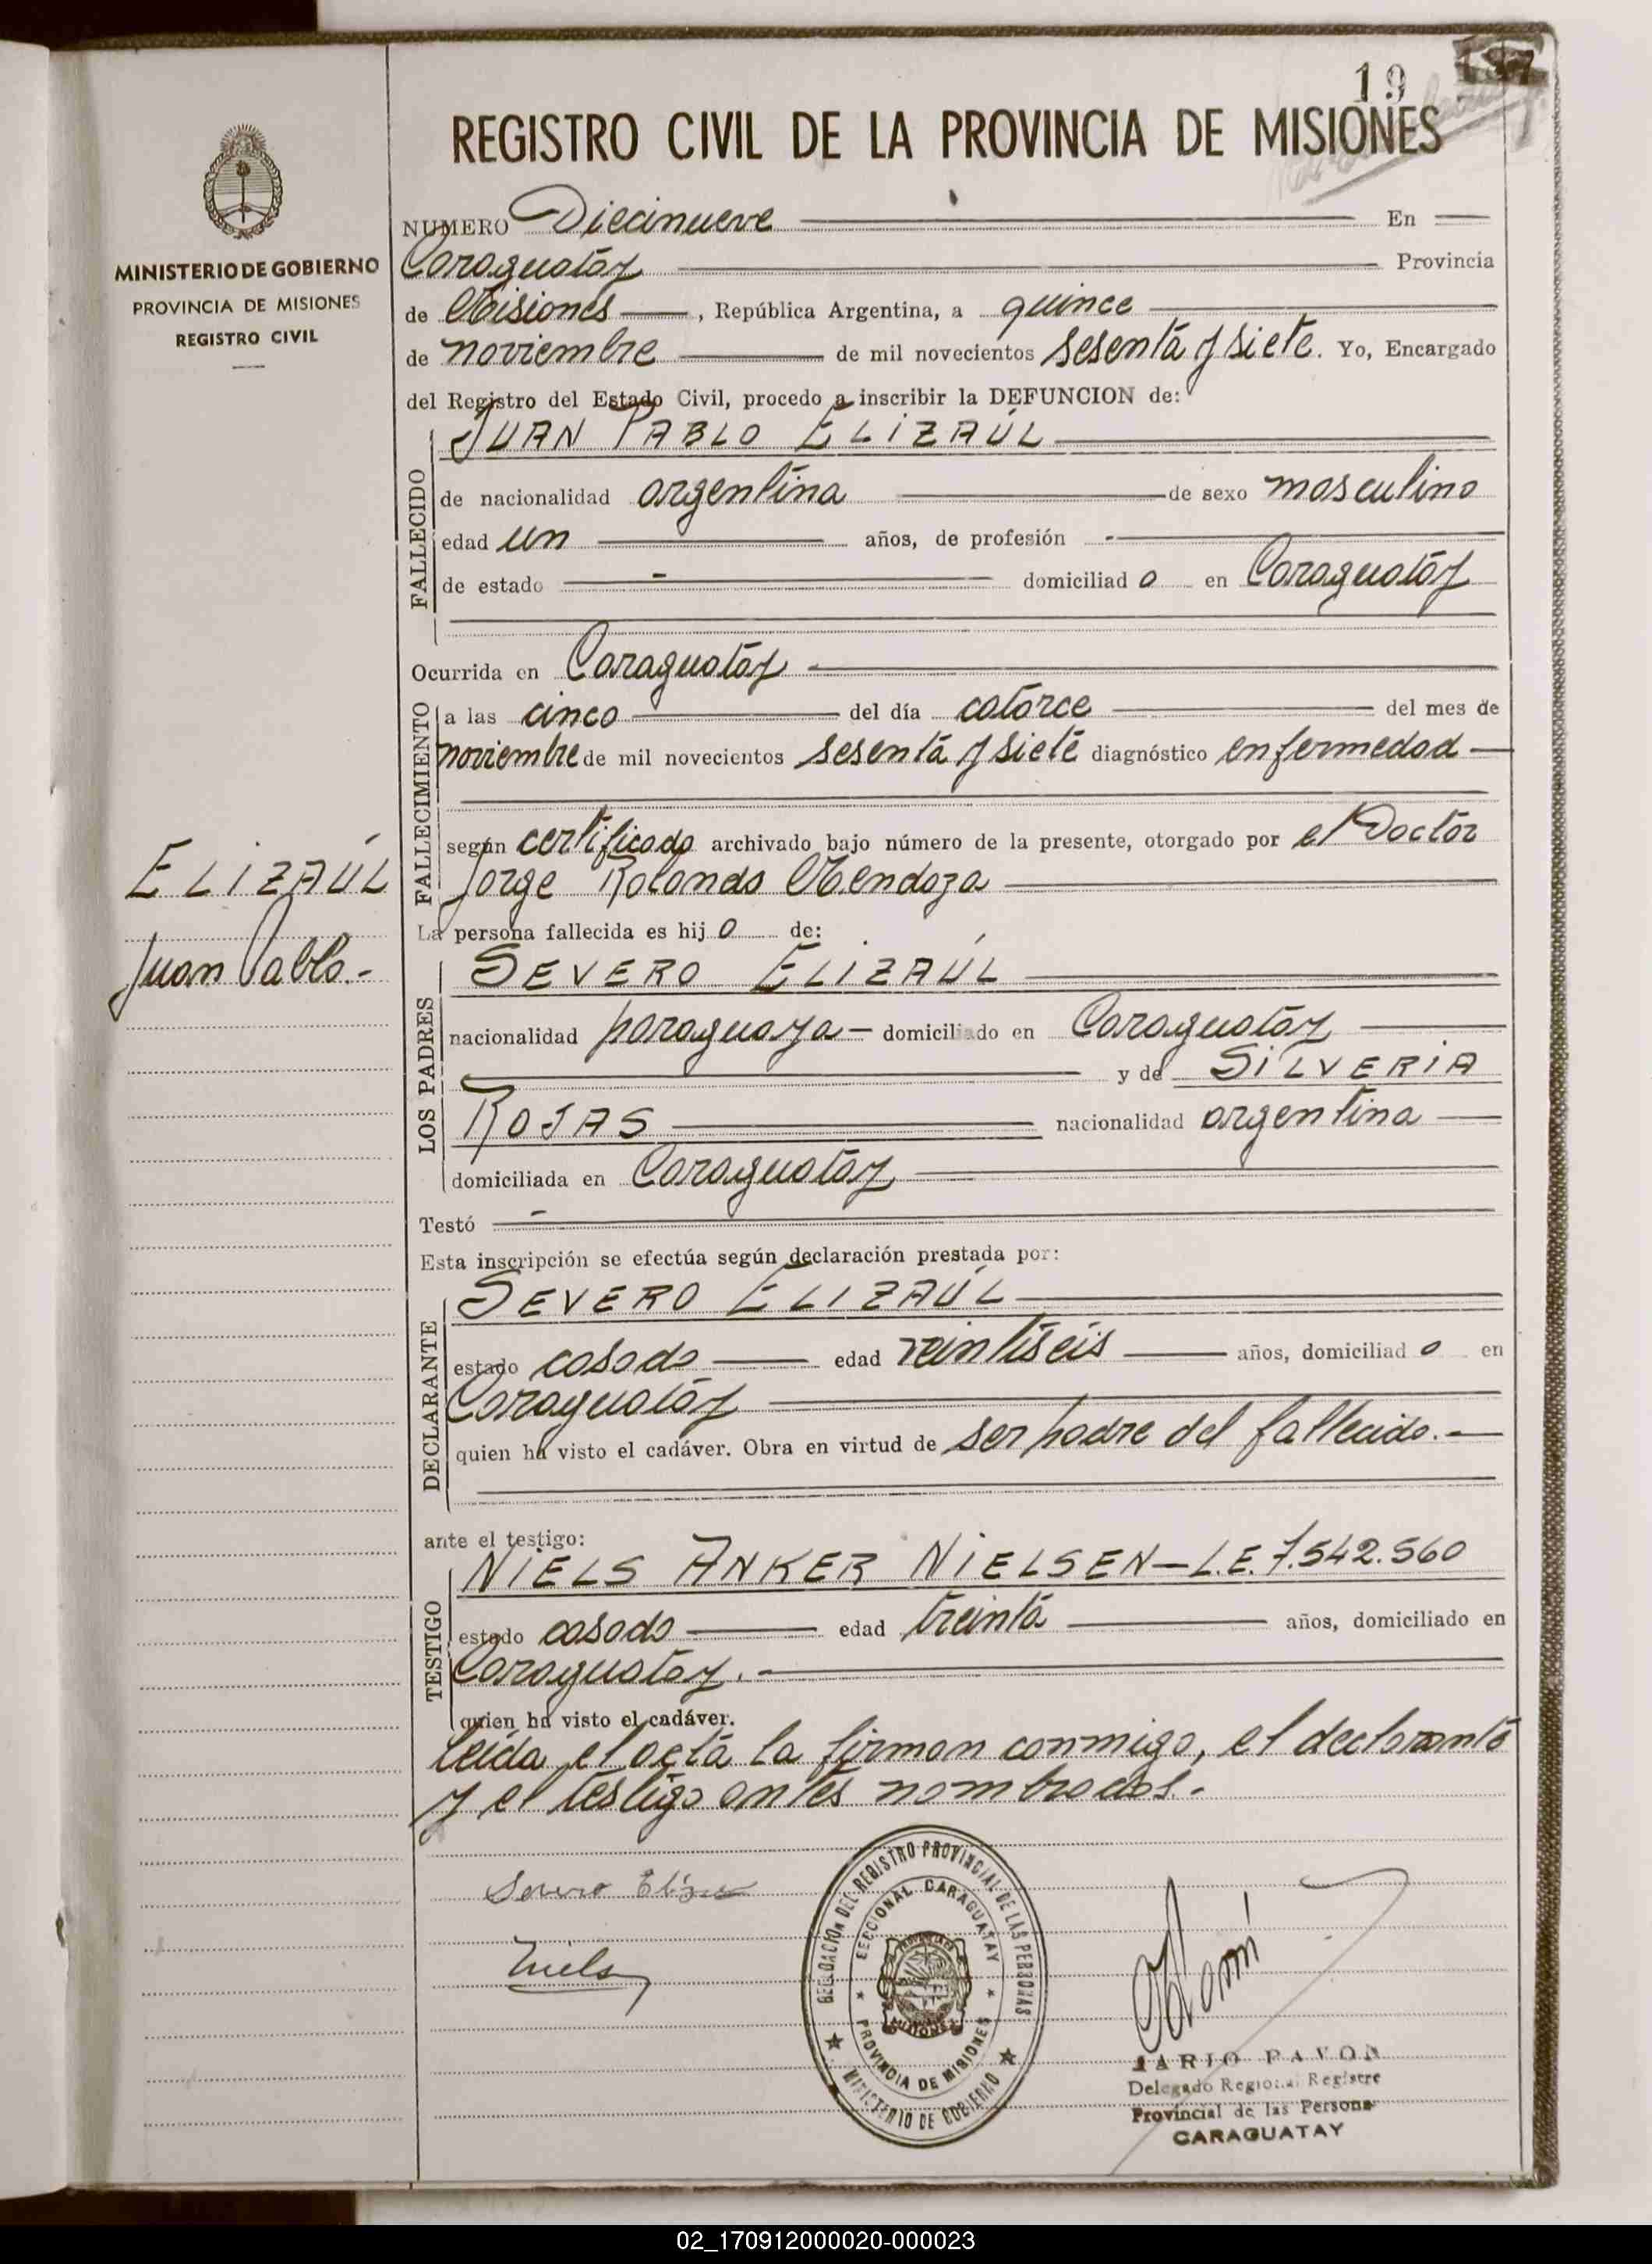 19
REGISTRO CIVIL DE LA PROVINCIA DE MISIONES
MINISTERIO DE GOBIERNO
PROVINCIA DE MISIONES
REGISTRO CIVIL
NUMERO Diecinueve En
Caraguatay Provincia
de Misiones, República Argentina, a quince
de noviembre de mil novecientos sesenta y siete. Yo, Encargado
del Registro del Estado Civil, procedo a inscribir la DEFUNCION de:
JUAN PABLO ELIZAÚL
FALLECIDO
de nacionalidad argentina de sexo masculino
edad un años, de profesión -
de estado - domiciliad o en Caraguatay
Ocurrida en Caraguatay
FALLECIMIENTO
a las cinco del día catorce del mes de
noviembre de mil novecientos sesenta y siete diagnóstico enfermedad
según certificado archivado bajo número de la presente, otorgado por el Doctor
Jorge Rolando Mendoza
ELIZAÚL
Juan Pablo.-
La persona fallecida es hij o de:
LOS PADRES
SEVERO ELIZAÚL
nacionalidad paraguaya - domiciliado en Caraguatay
y de SILVERIA
ROJAS nacionalidad argentina
domiciliada en Caraguatay
Testó -
Esta inscripción se efectúa según declaración prestada por:
DECLARANTE
SEVERO ELIZAÚL
estado casado edad veintiseis años, domiciliad o en
Caraguatay
quien ha visto el cadáver. Obra en virtud de ser padre del fallecido.-
ante el testigo:
TESTIGO
NIELS ANKER NIELSEN - L.E. 7.542.560
estado casado edad treinta años, domiciliado en
Caraguatay.-
quien ha visto el cadáver.
Leída el acta la firman conmigo, el declarante
y el testigo antes nombrados.-
Severo
Niels
DELEGACION DEL REGISTRO PROVINCIAL DE LAS PERSONAS
SECCIONAL CARAGUATAY
MISIONES
PROVINCIA DE MISIONES
MINISTERIO DE GOBIERNO
PAVON
Delegado Regional Registro
Provincial de las Persona
CARAGUATAY
02_170912000020-000023